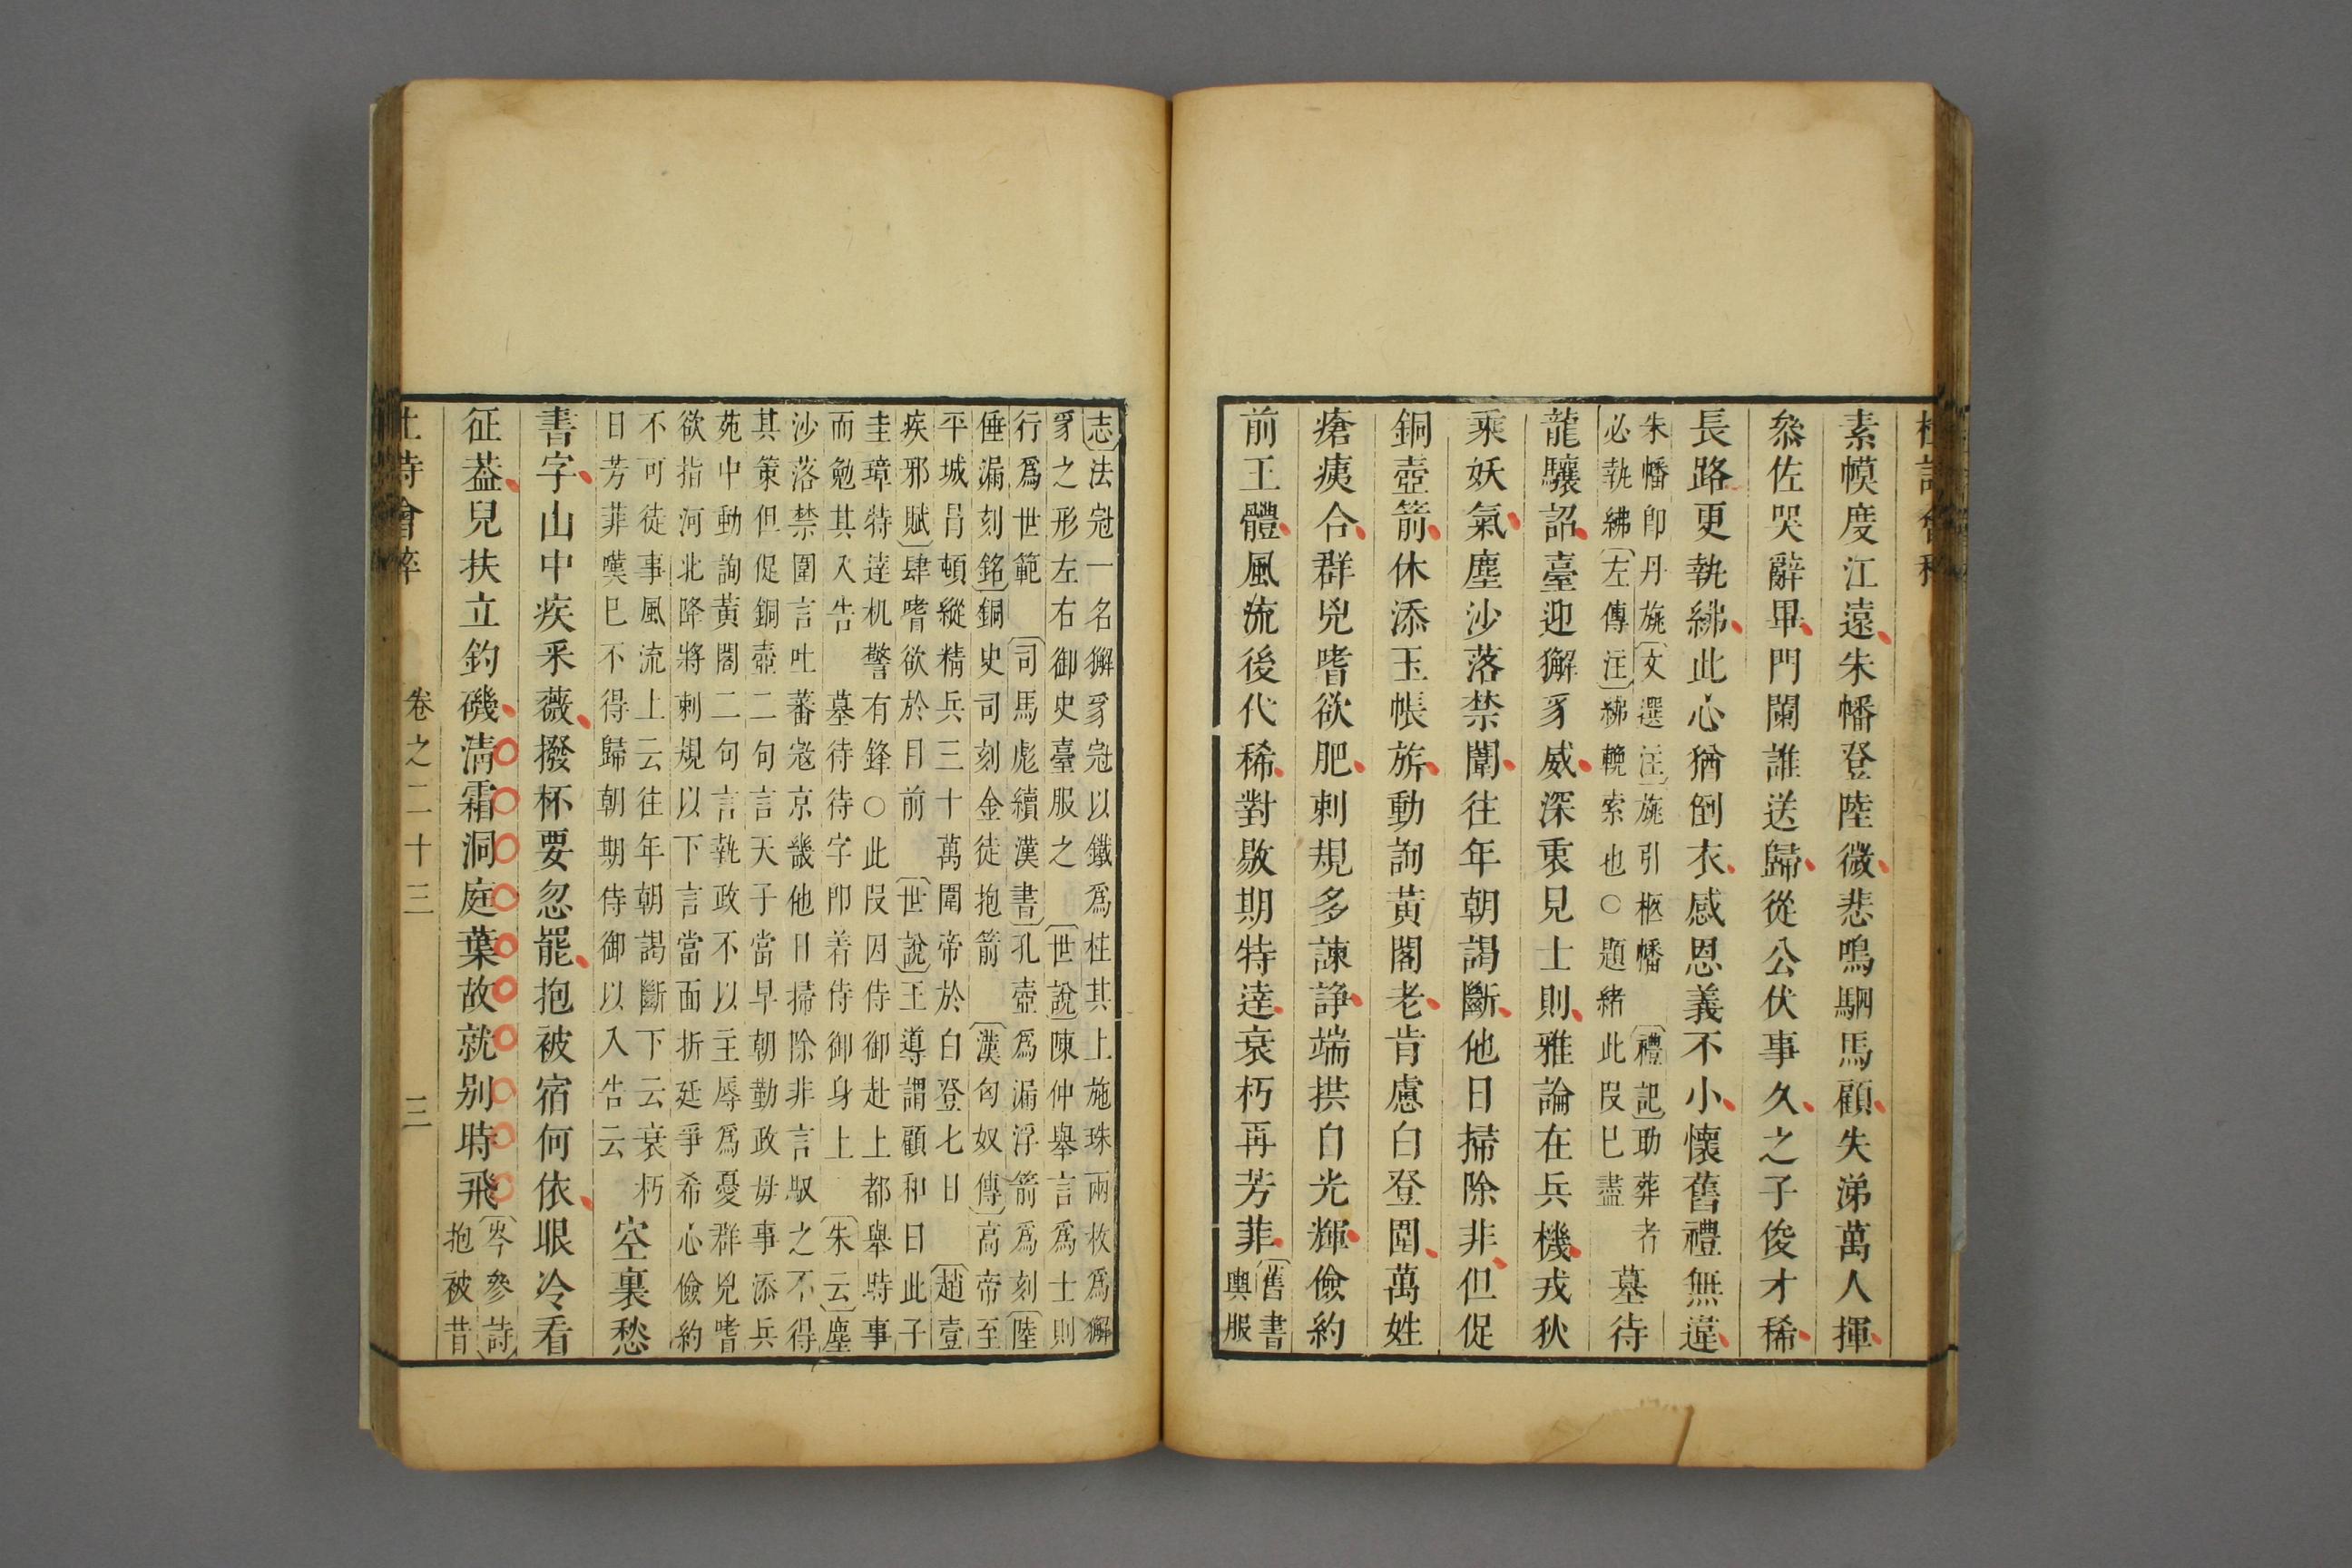 素幙度江遠朱幡登陸微悲鳴駟馬顧失涕萬人揮
叅佐哭辭畢門闌誰送歸從公伏事久之子俊才稀
長路更執紼此心猶倒衣感恩義不小懷舊禮無違
朱幡卽丹旐〔文選注〕旐引柩幡〔禮記〕助葬者
必執紼〔左傳注〕紼輓索也○題緒此段巳盡
墓待
龍驤詔臺迎獬豸威深衷見士則雅論在兵機戎狄
乘妖氣塵沙落禁闈往年朝謁斷他日掃除非但促
銅壺箭休添玉帳旂動詢黃閣老肯慮白登圍萬姓
瘡痍合群兇嗜欲肥刺規多諫諍端拱自光輝儉約
前王體風流後代稀對敭期特達衰朽再芳菲
〔舊書
輿服
志〕法冠一名獬豸冠以鐵爲柱其上施珠兩枚爲獬
豸之形左右御史臺服之〔世說〕陳仲舉言爲士則
行爲世範〔司馬彪續漢書〕孔壺爲漏浮箭爲刻〔陸
倕漏刻銘〕銅史司刻金徒抱箭〔漢匈奴傳〕高帝至
平城冐頓縱精兵三十萬圍帝於白登七日〔趙壹
疾邪賦〕肆嗜欲於目前〔世說〕王導謂顧和曰此子
圭璋特達机警有鋒○此段因侍御赴上都舉時事
而勉其入告墓待待字卽着侍御身上〔朱云〕塵
沙落禁闈言吐蕃寇京畿他日掃除非言馭之不得
其策但促銅壺二句言天子當早朝勤政毋事添兵
苑中動詢黃閣二句言執政不以主辱爲憂群兇嗜
欲指河北降將刺規以下言當面折廷爭希心儉約
不可徒事風流上云往年朝謁斷下云衰朽
日芳菲嘆巳不得歸朝期侍御以入告云
空裏愁
書字山中疾采薇撥杯要忽罷抱被宿何依眼冷看
征葢兒扶立釣磯淸霜洞庭葉故就别時飛
〔岑參詩〕
抱被昔
卷之二十三
三